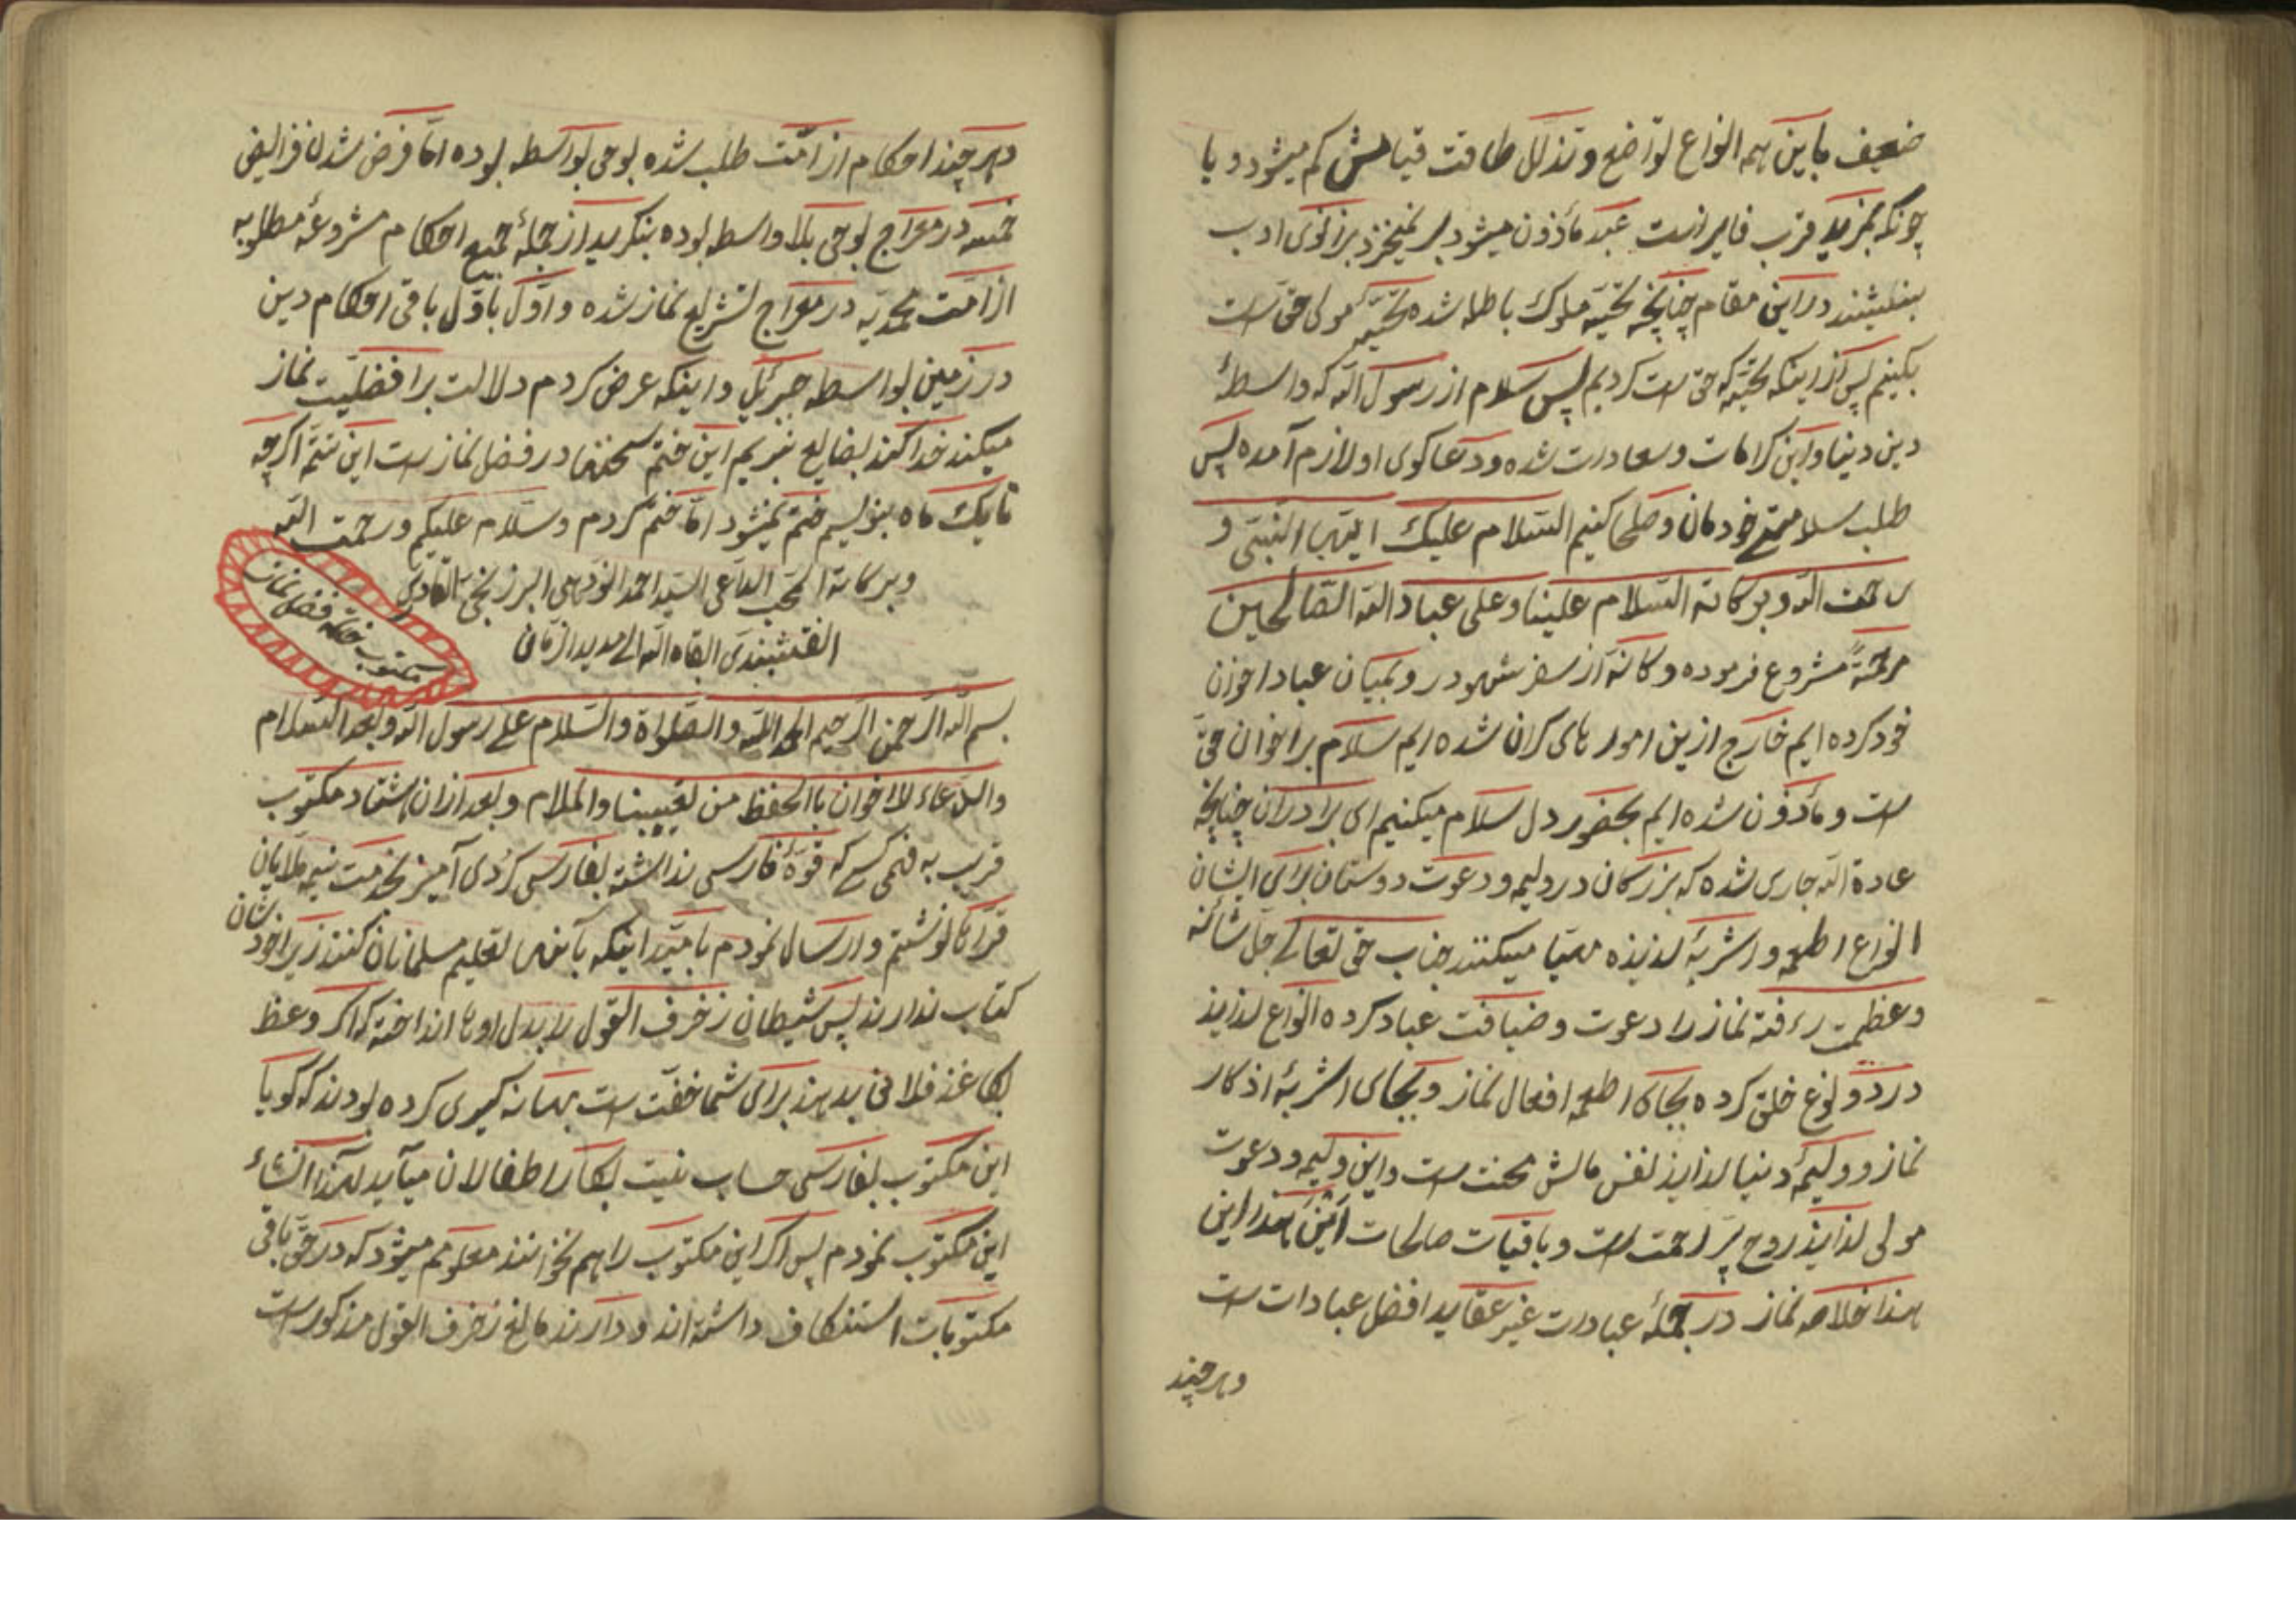 ضعیف باین همه انواع تواضع و تذلل طاقت قیامش کم میشود و یا
چونکه بمزید قرب فایز است عبد مأذون میشود بر نمیخیزد بزانوی ادب
بنشیند در این مقام چنانچه تحیّه ملوک باطله شده تحیّه مولی حق است
بکنیم پس از اینکه تحیّه که حق است کردیم پس سلام از رسول الله که واسطهٔ
دین دنیا و این کرامات و سعادت شده و دعا کوی او لازم آمده پس
طلب سلامتی خودمان و صلحا کنیم السّلام علیک ایّها النّبیّ و
رحمت الله و برکاته السّلام علینا و علی عباد الله الصّالحین
مرحمةً مشروع فرموده و کانّه از سفر شهود رو بمیان عباد اخوان
خود کرده ایم خارج ازین امور های کران شده ایم سلام بر اخوان حق
است و مأذون شده ایم بحضور دل سلام میکنیم ای برادران چنانچه
عادة الله جاری شده که بزرکان در ولیمه و دعوت دوستان برای ایشان
انواع اطعمه و اشربهٔ لذیذه مهیّا میکنند جناب حق تعالی جلّ شأنه
و عظمت رءفته نماز را دعوت و ضیافت عباد کرده انواع لذایذ
در دو نوع خلق کرده بجای اطعمه افعال نماز و بجای اشربهٔ اذکار
نماز و ولیمهٔ دنیا لذایذ نفس مالش محنت است و این ولیمه و دعوت
مولی لذایذ روح پر رحمت است و باقیات صالحات این هذا این
هذا خلاصه نماز در جملهٔ عبادت غیر عقاید افضل عبادات است
و هر چند
و هر چند احکام از امّت طلب شده بوحی بواسطه بوده امّا فرض شدن فرایض
خمسه در معراج بوحی بلا واسطه بوده بنکرید از جملهٔ جمیع احکام مشروعهٔ مطلوبه
از امّت محمّدیّه در معراج تشریع نماز شده و اوّل باوّل باقی احکام دین
در زمین بواسطه جبرئیل و اینکه عرض کردم دلالت بر افضلیّت نماز
میکند خدا کند بضایع نبریم این ختم سخنها در فضل نماز است این تتمّه اکرچه
تا یک ماه بنویسم ختم نمیشود امّا ختم کردم و سلام علیکم و رحمت الله
و برکاته المحب الدّاعی السّید احمد النودهی البرزنجی القادری
النقشبندی ابقاه الله الی مدید الزمان
مکتوب خاتمه فضل نماز
بسم الله الرّحمن الرّحیم الحمد لله و الصّلواة و السّلام علی رسول الله و بعد السّلام
والدّعاء لاخوان باالحفظ من تعییبنا والملام و بعد ازان هشتاد مکتوب
قریب به فهمی کسی که قوّهٔ فارسی نداشته بفارسی کردی آمیز بخدمت نیم ملایان
قرا کا نوشتم و ارسال نمودم بامّید اینکه بآنها تعلیم مسلمانان کنند زیرا خودشان
کتاب ندارند پس شیطان زخرف القول را بدل او ها انداخته که اکر وعظ
بکاغذ فلانی بدهند برای شما خفّت است بهانه کیری کرده بودند که کویا
این مکتوب بفارسی حساب نیست بکار اطفالان میآید لهذا انشاء
این مکتوب نمودم پس اکر این مکتوب را هم نخوانند معلوم میشود که در حق باقی
مکتوبات استنکاف داشته اند و دارند مانع زخرف القول مذکور است